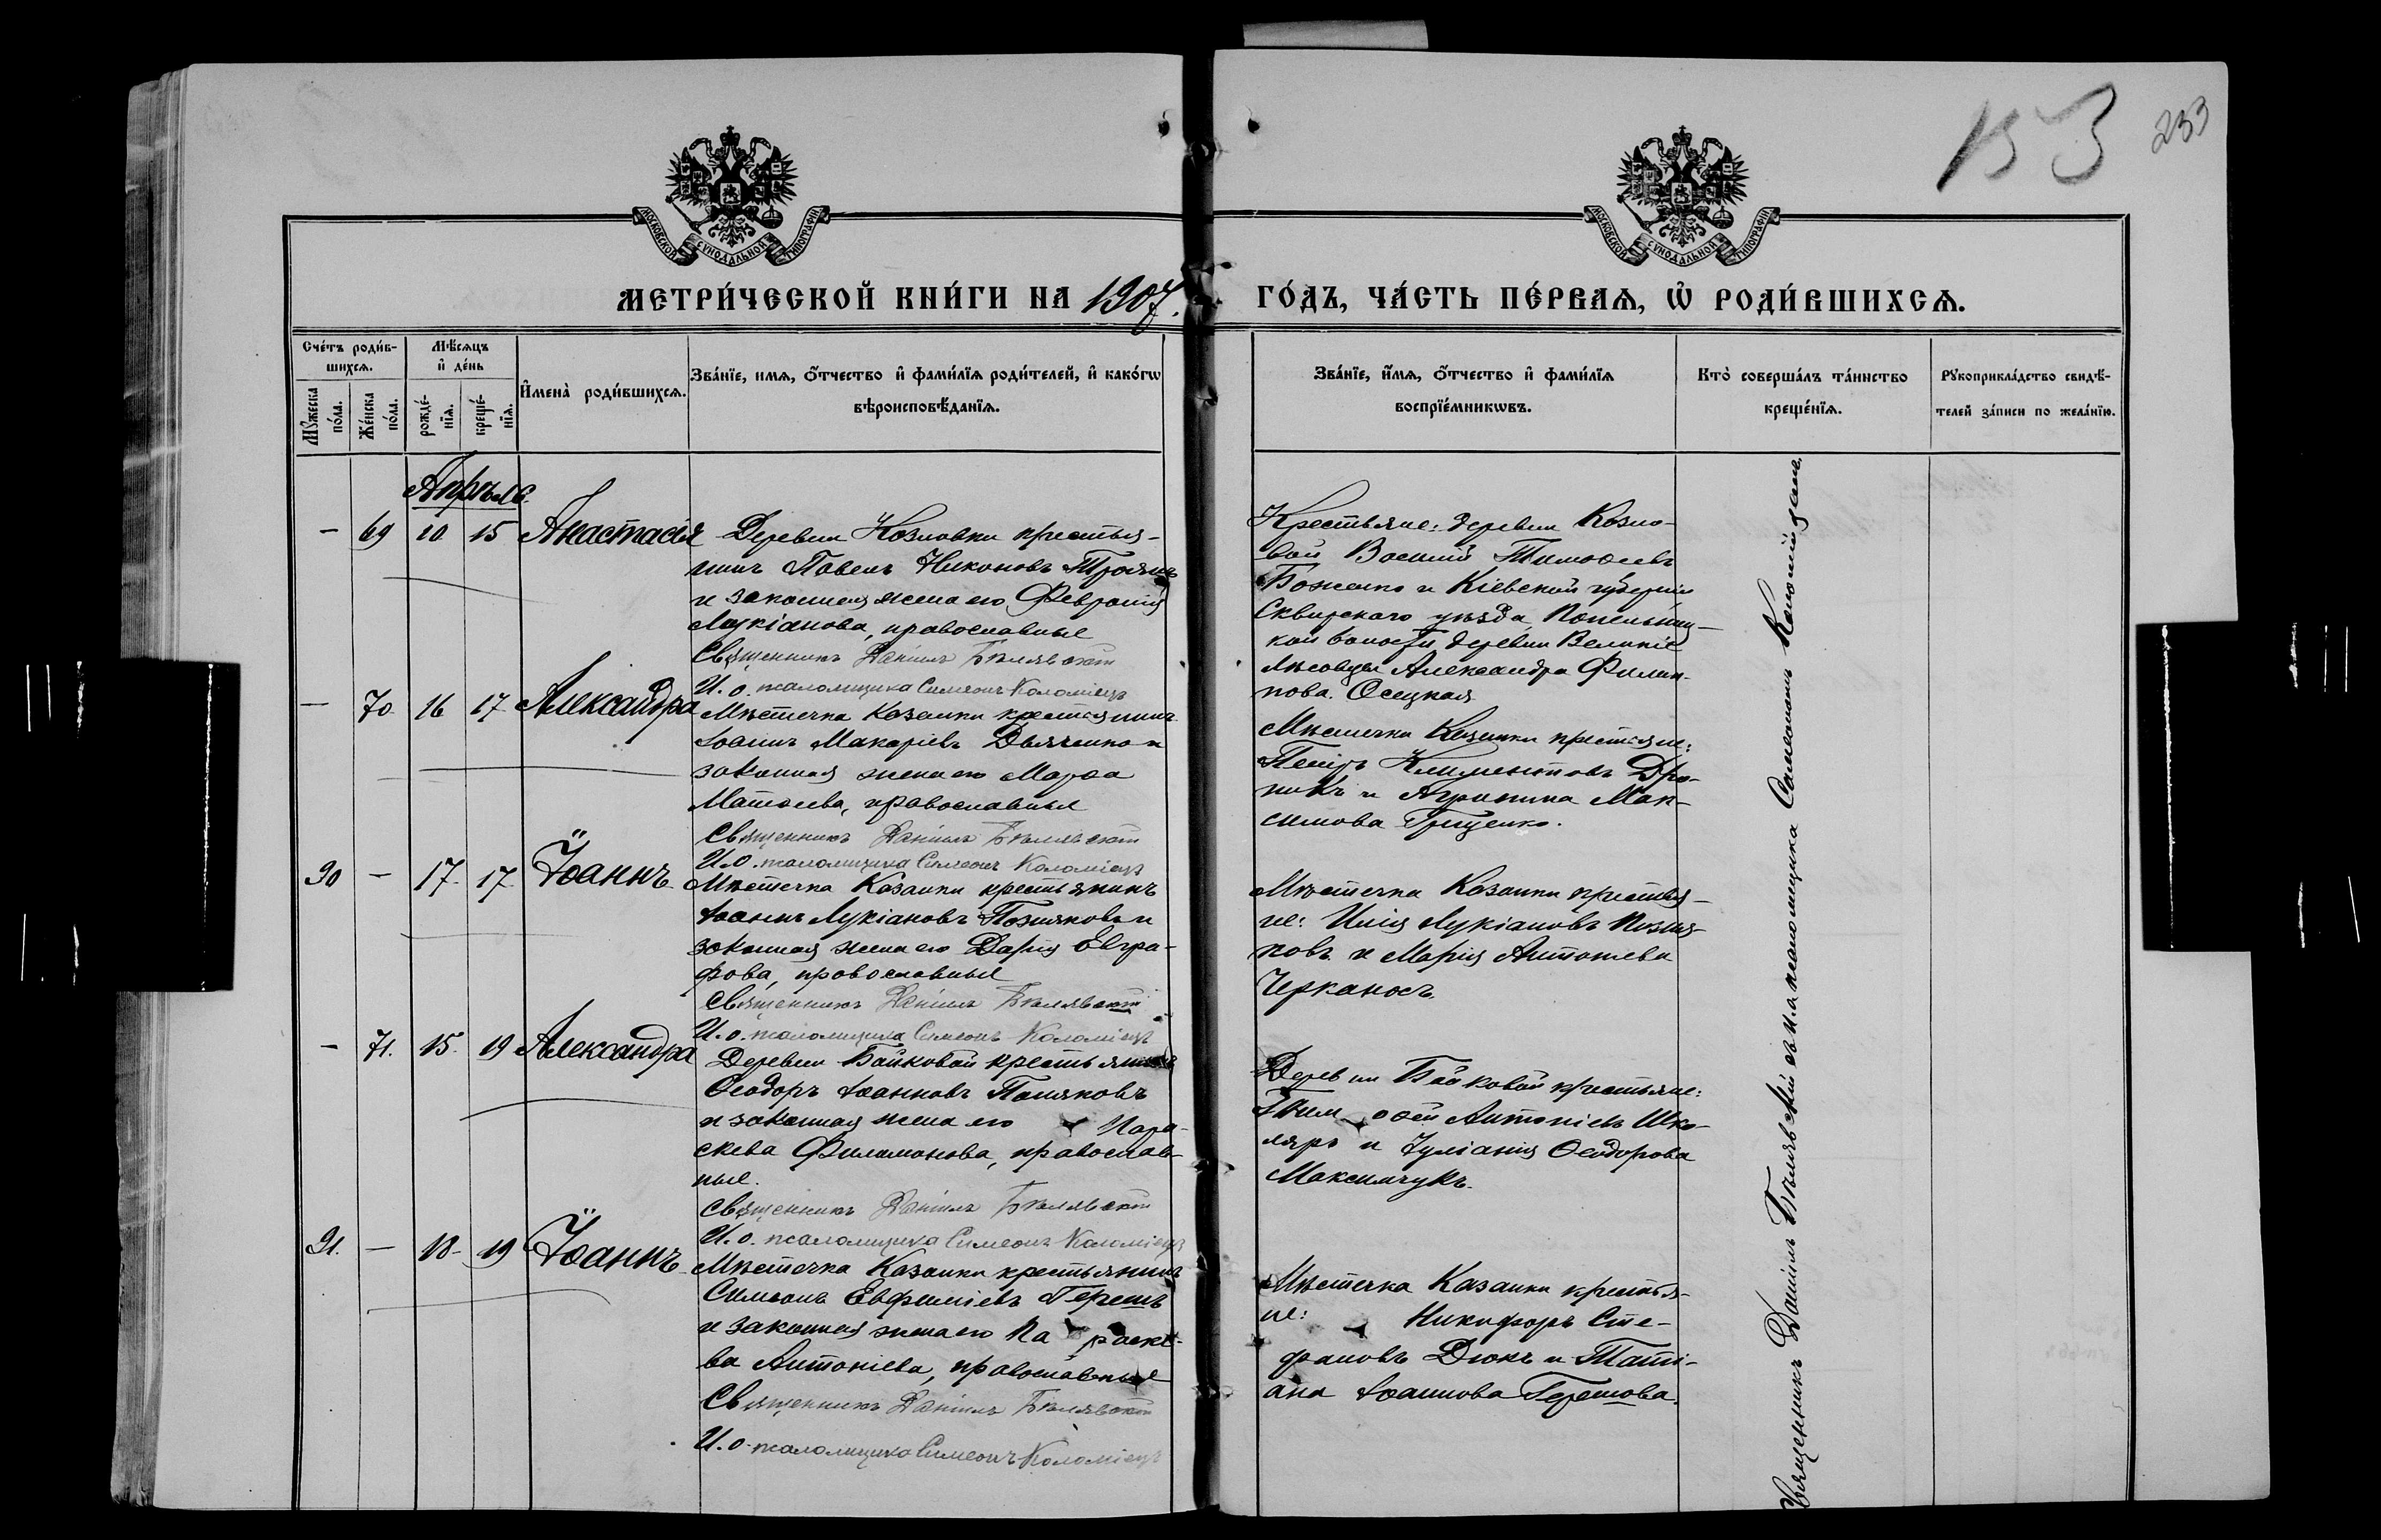 153
233
МОСКОВСКОЙ СУНОДАЛЬНОЙ ТИПОГРАФІИ
МОСКОВСКОЙ СУНОДАЛЬНОЙ ТИПОГРАФІИ
МЕТРИ́ЧЕСКОЙ КНИ́ГИ НА 1907.
ГО́ДЪ, ЧА́СТЬ ПЕ́РВАѦ, Ѡ҆ РОДИ́ВШИХСѦ.
Сче́тъ роди́в-
шихсѧ.
Мꙋ́жеска по́ла.
Же́нска по́ла.
Мѣ́сѧцъ
и҆ де́нь
рожде́-
нїѧ.
креще́-
нїѧ.
И҆мена̀ роди́вшихсѧ.
Зва́нїе, имѧ, ѻ҆́тчество и҆ фами́лїѧ роди́телей, и҆ како́гѡ
вѣроисповѣ́данїѧ.
Зва́нїе, и҆́мѧ, ѻ҆́тчество и҆ фами́лїѧ
воспрїе́мникѡвъ.
Кто̀ соверша́лъ та́инство
креще́нїѧ.
Рꙋкоприкла́дство свидѣ́-
телей за́писи по жела́нїю.
Апрѣль
— 69 10 15 Анастасія
Деревни Козловки крестья-
нинъ Павелъ Никоновъ Троянъ
и законная жена его Февронія
Лукіанова, православные
Священникъ Даніилъ Бѣлявскій
И. о. псаломщика Симеонъ Коломіецъ
Крестьяне: деревни Козло-
вой Василій Тимоѳеевъ
Боженко и Кіевской губерніи
Сквирскаго уѣзда, Попельниц-
кой волости деревни Великіе
Лѣсовцы Александра Филип-
пова Осецкая
— 70 16 17 Александра
Мѣстечка Казанки крестьянинъ
Іоаннъ Макаріевъ Дьяченко и
законная жена его Марѳа
Матѳеева, православные
Священникъ Даніилъ Бѣлявскій
И. о. псаломщика Симеонъ Коломіецъ
Мѣстечка Казанки крестьяне:
Петръ Климентовъ Дро-
никъ и Агрипина Мак-
симова Грищенко.
90 — 17 17 Іоаннъ
Мѣстечка Казанки крестьянинъ
Іоаннъ Лукіановъ Позняковъ и
законная жена его Дарія Евгра-
фова, православные
Священникъ Даніилъ Бѣлявскій
И. о. псаломщика Симеонъ Коломіецъ
Мѣстечка Казанки крестья-
не: Илія Лукіановъ Позня-
ковъ и Марія Антоніева
Черканосъ.
— 71. 15. 19 Александра
Деревни Байковой крестьянинъ
Ѳеодоръ Іоанновъ Позняковъ
и законная жена его Пара-
скева Филимонова, православ-
ные.
Священникъ Даніилъ Бѣлявскій
И. о. псаломщика Симеонъ Коломіецъ
Деревни Байковой крестьяне:
Тимоѳей Антоніевъ Шко-
ляръ и Іуліанія Ѳеодорова
Максимчукъ.
91. — 18 19 Іоаннъ
Мѣстечка Казанки крестьянинъ
Симеонъ Евфиміевъ Герешъ
и законная жена его Параске-
ва Антоніева, православные
Священникъ Даніилъ Бѣлявскій
И. о. псаломщика Симеонъ Коломіецъ
Мѣстечка Казанки крестья-
не: Никифоръ Сте-
фановъ Дюкъ и Таті-
ана Іоаннова Герешова.
Священникъ Даніилъ Бѣлявскій съ и. о. псаломщика Симеономъ Коломійцемъ.